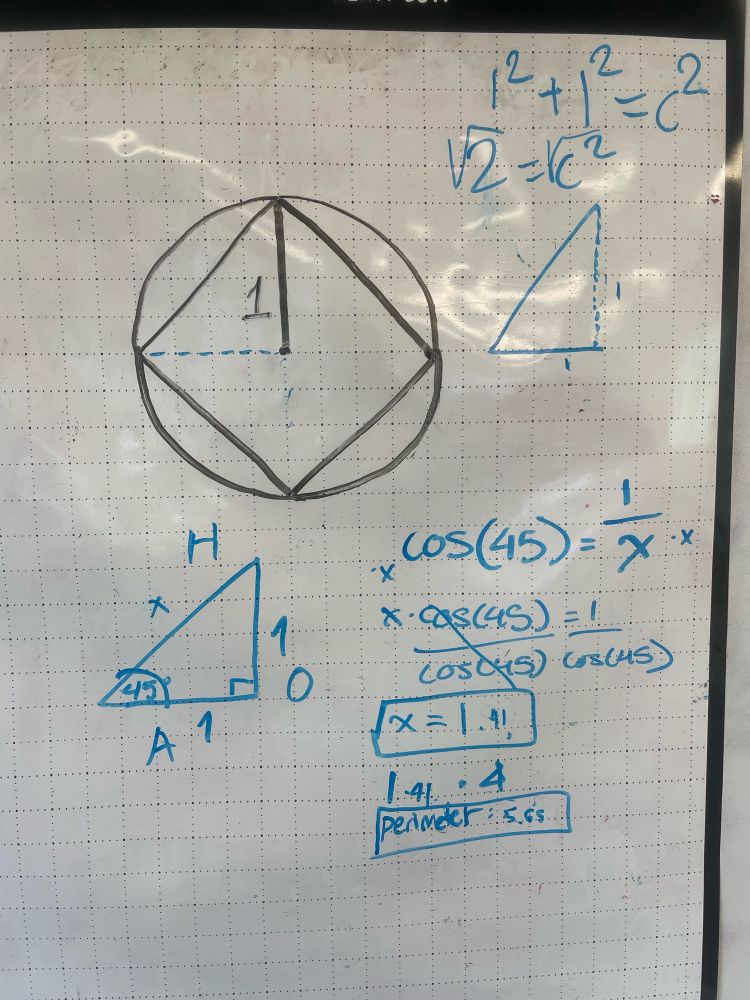 1² + 1² = c²
√2 = √c²
1
1
1
H
x
1
45°
O
A 1
cos(45) = 1/x · x
· x
x · cos(45) / cos(45) = 1 / cos(45)
x = 1.41
1.41 · 4
perimeter: 5.65